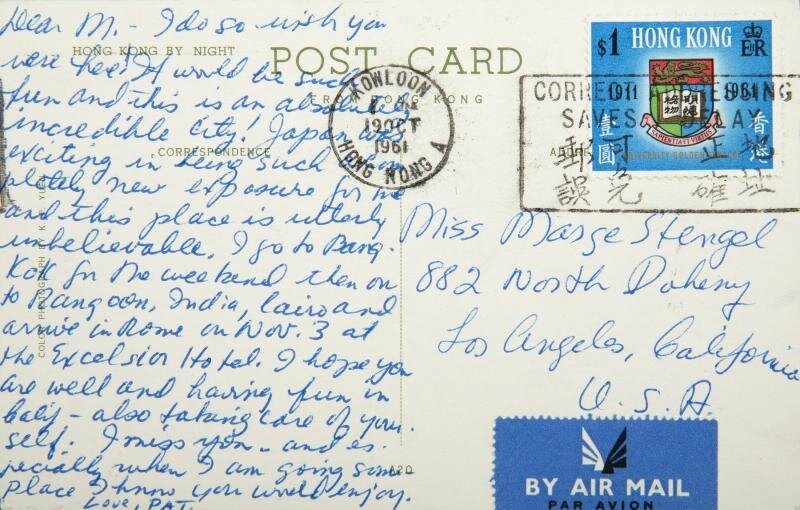 HONG KONG BY NIGHT
POST CARD
FROM HONG KONG
CORRESPONDENCE
Dear M. - I do so wish you
were here! It would be such
fun and this is an absolutely
incredible city. Japan was
exciting in being such a com-
pletely new exposure for me
and this place is utterly
unbelievable. I go to Bang-
Kok for the weekend then on
to Rangoon, India, Cairo and
arrive in Rome on Nov. 3 at
the Excelsior Hotel. I hope you
are well and having fun in
Calif - also taking care of your-
self. I miss you - and es-
pecially when I am going some-
place I know you would enjoy.
Love, PAT.
COLOR PHOTOGRAPH BY K.
KOWLOON
19 OCT
1961
HONG KONG A
$1 HONG KONG
E II R
1911 1961
壹圓
香港
UNIVERSITY GOLDEN JUBILEE
CORRECT ADDRESSING
SAVES DELAY
郵 可 正 地
誤 免 確 址
Miss Marge Stengel
882 North Doheny
Los Angeles, California
U.S.A.
BY AIR MAIL
PAR AVION
A20